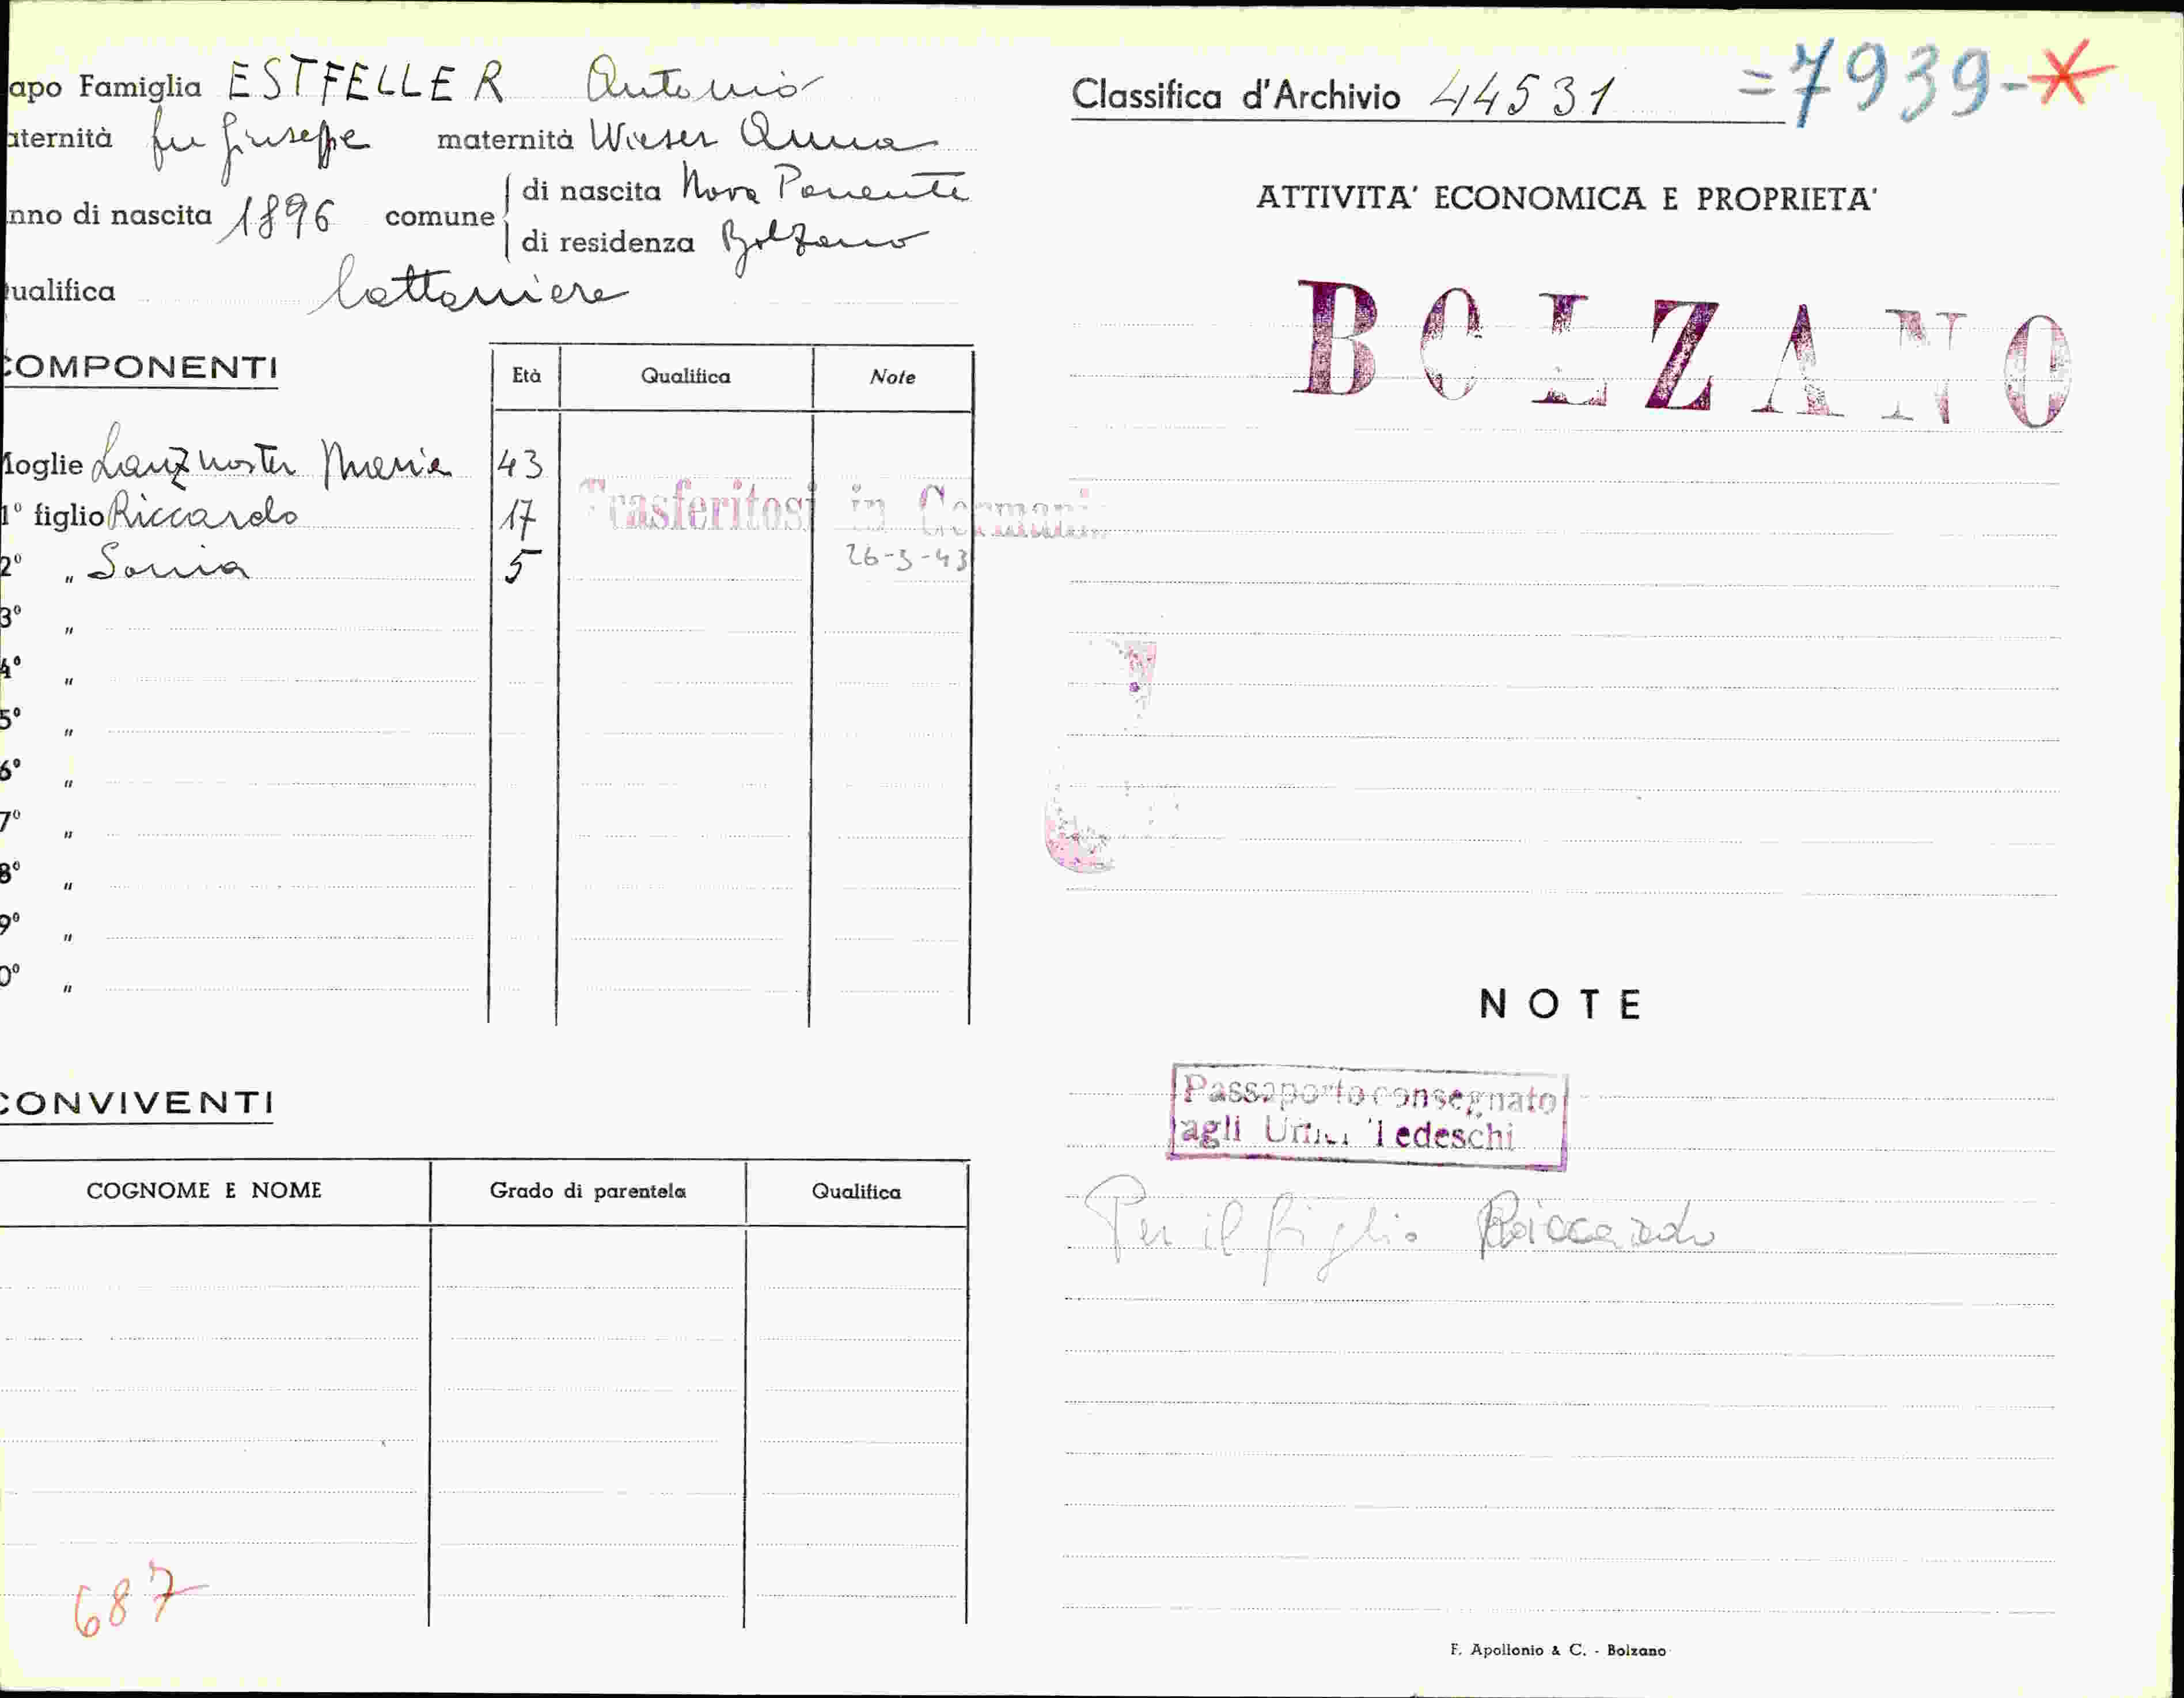 apo Famiglia ESTFELLER Antonio
aternità fu Giuseppe maternità Wieser Anna
nno di nascita 1896 comune di nascita Nova Ponente
di residenza Bolzano
ualifica lattoniere
COMPONENTI
Età Qualifica Note
Moglie Maria 43
1º figlio Riccardo 17
Trasferitosi in Germani
2º " Sonia 5
26-3-43
3º "
4º "
5º "
6º "
7º "
8º "
9º "
0º "
CONVIVENTI
COGNOME E NOME Grado di parentela Qualifica
687
Classifica d'Archivio 44531 =7939-*
ATTIVITA' ECONOMICA E PROPRIETA'
BOLZANO
NOTE
Passaporto consegnato
agli Uffici Tedeschi
Per il figlio Riccardo
F. Apollonio & C. - Bolzano